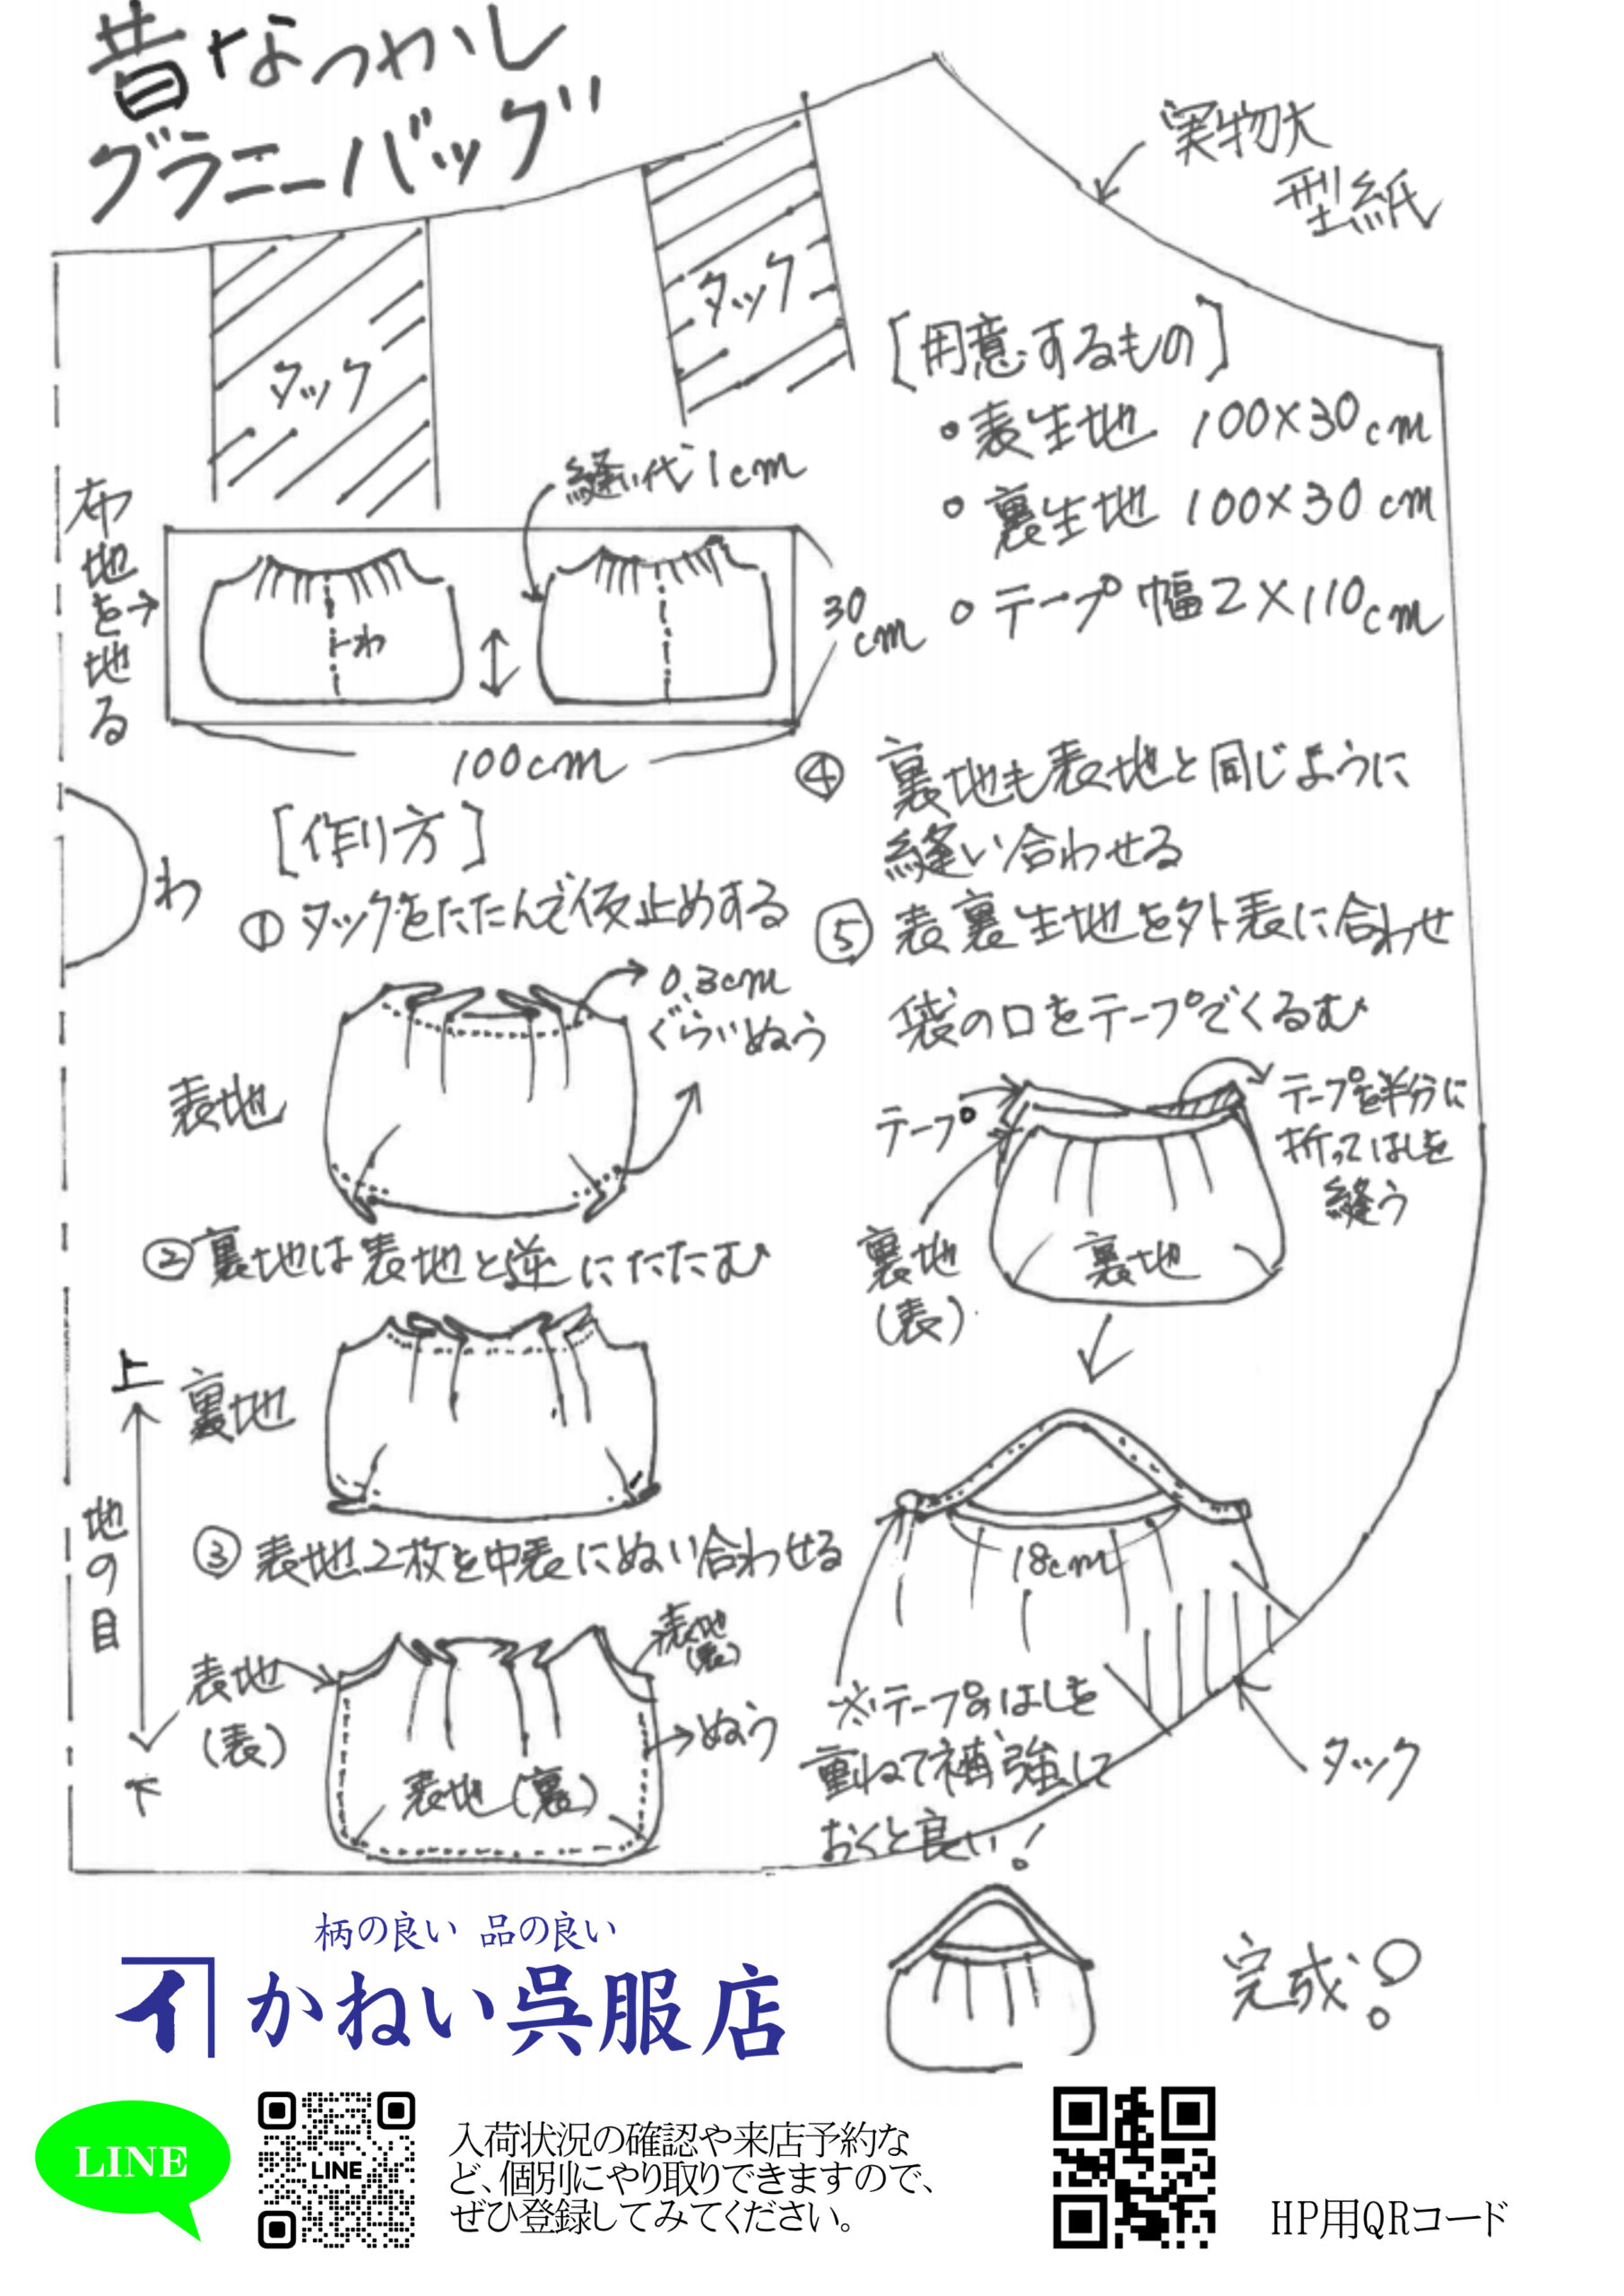 昔なつかし
グラニーバッグ
実物大
型紙
タック
タック
[用意するもの]
・表生地 100×30cm
・裏生地 100×30cm
・テープ 幅2×110cm
縫い代1cm
布地を地る
わ
30cm
100cm
わ
[作り方]
① タックをたたんで仮止めする
0.3cm
ぐらいぬう
表地
② 裏地は表地と逆にたたむ
裏地
上
地の目
下
③ 表地2枚を中表にぬい合わせる
表地
(表)
表地
(表)
ぬう
表地(裏)
④ 裏地も表地と同じように
縫い合わせる
⑤ 表裏生地を外表に合わせ
袋の口をテープでくるむ
テープ
テープを半分に
折ってはしを
縫う
裏地
(表)
裏地
18cm
※テープのはしを
重ねて補強して
おくと良い!
タック
完成!
柄の良い 品の良い
イ かねい呉服店
LINE
LINE
入荷状況の確認や来店予約な
ど、個別にやり取りできますので、
ぜひ登録してみてください。
HP用QRコード